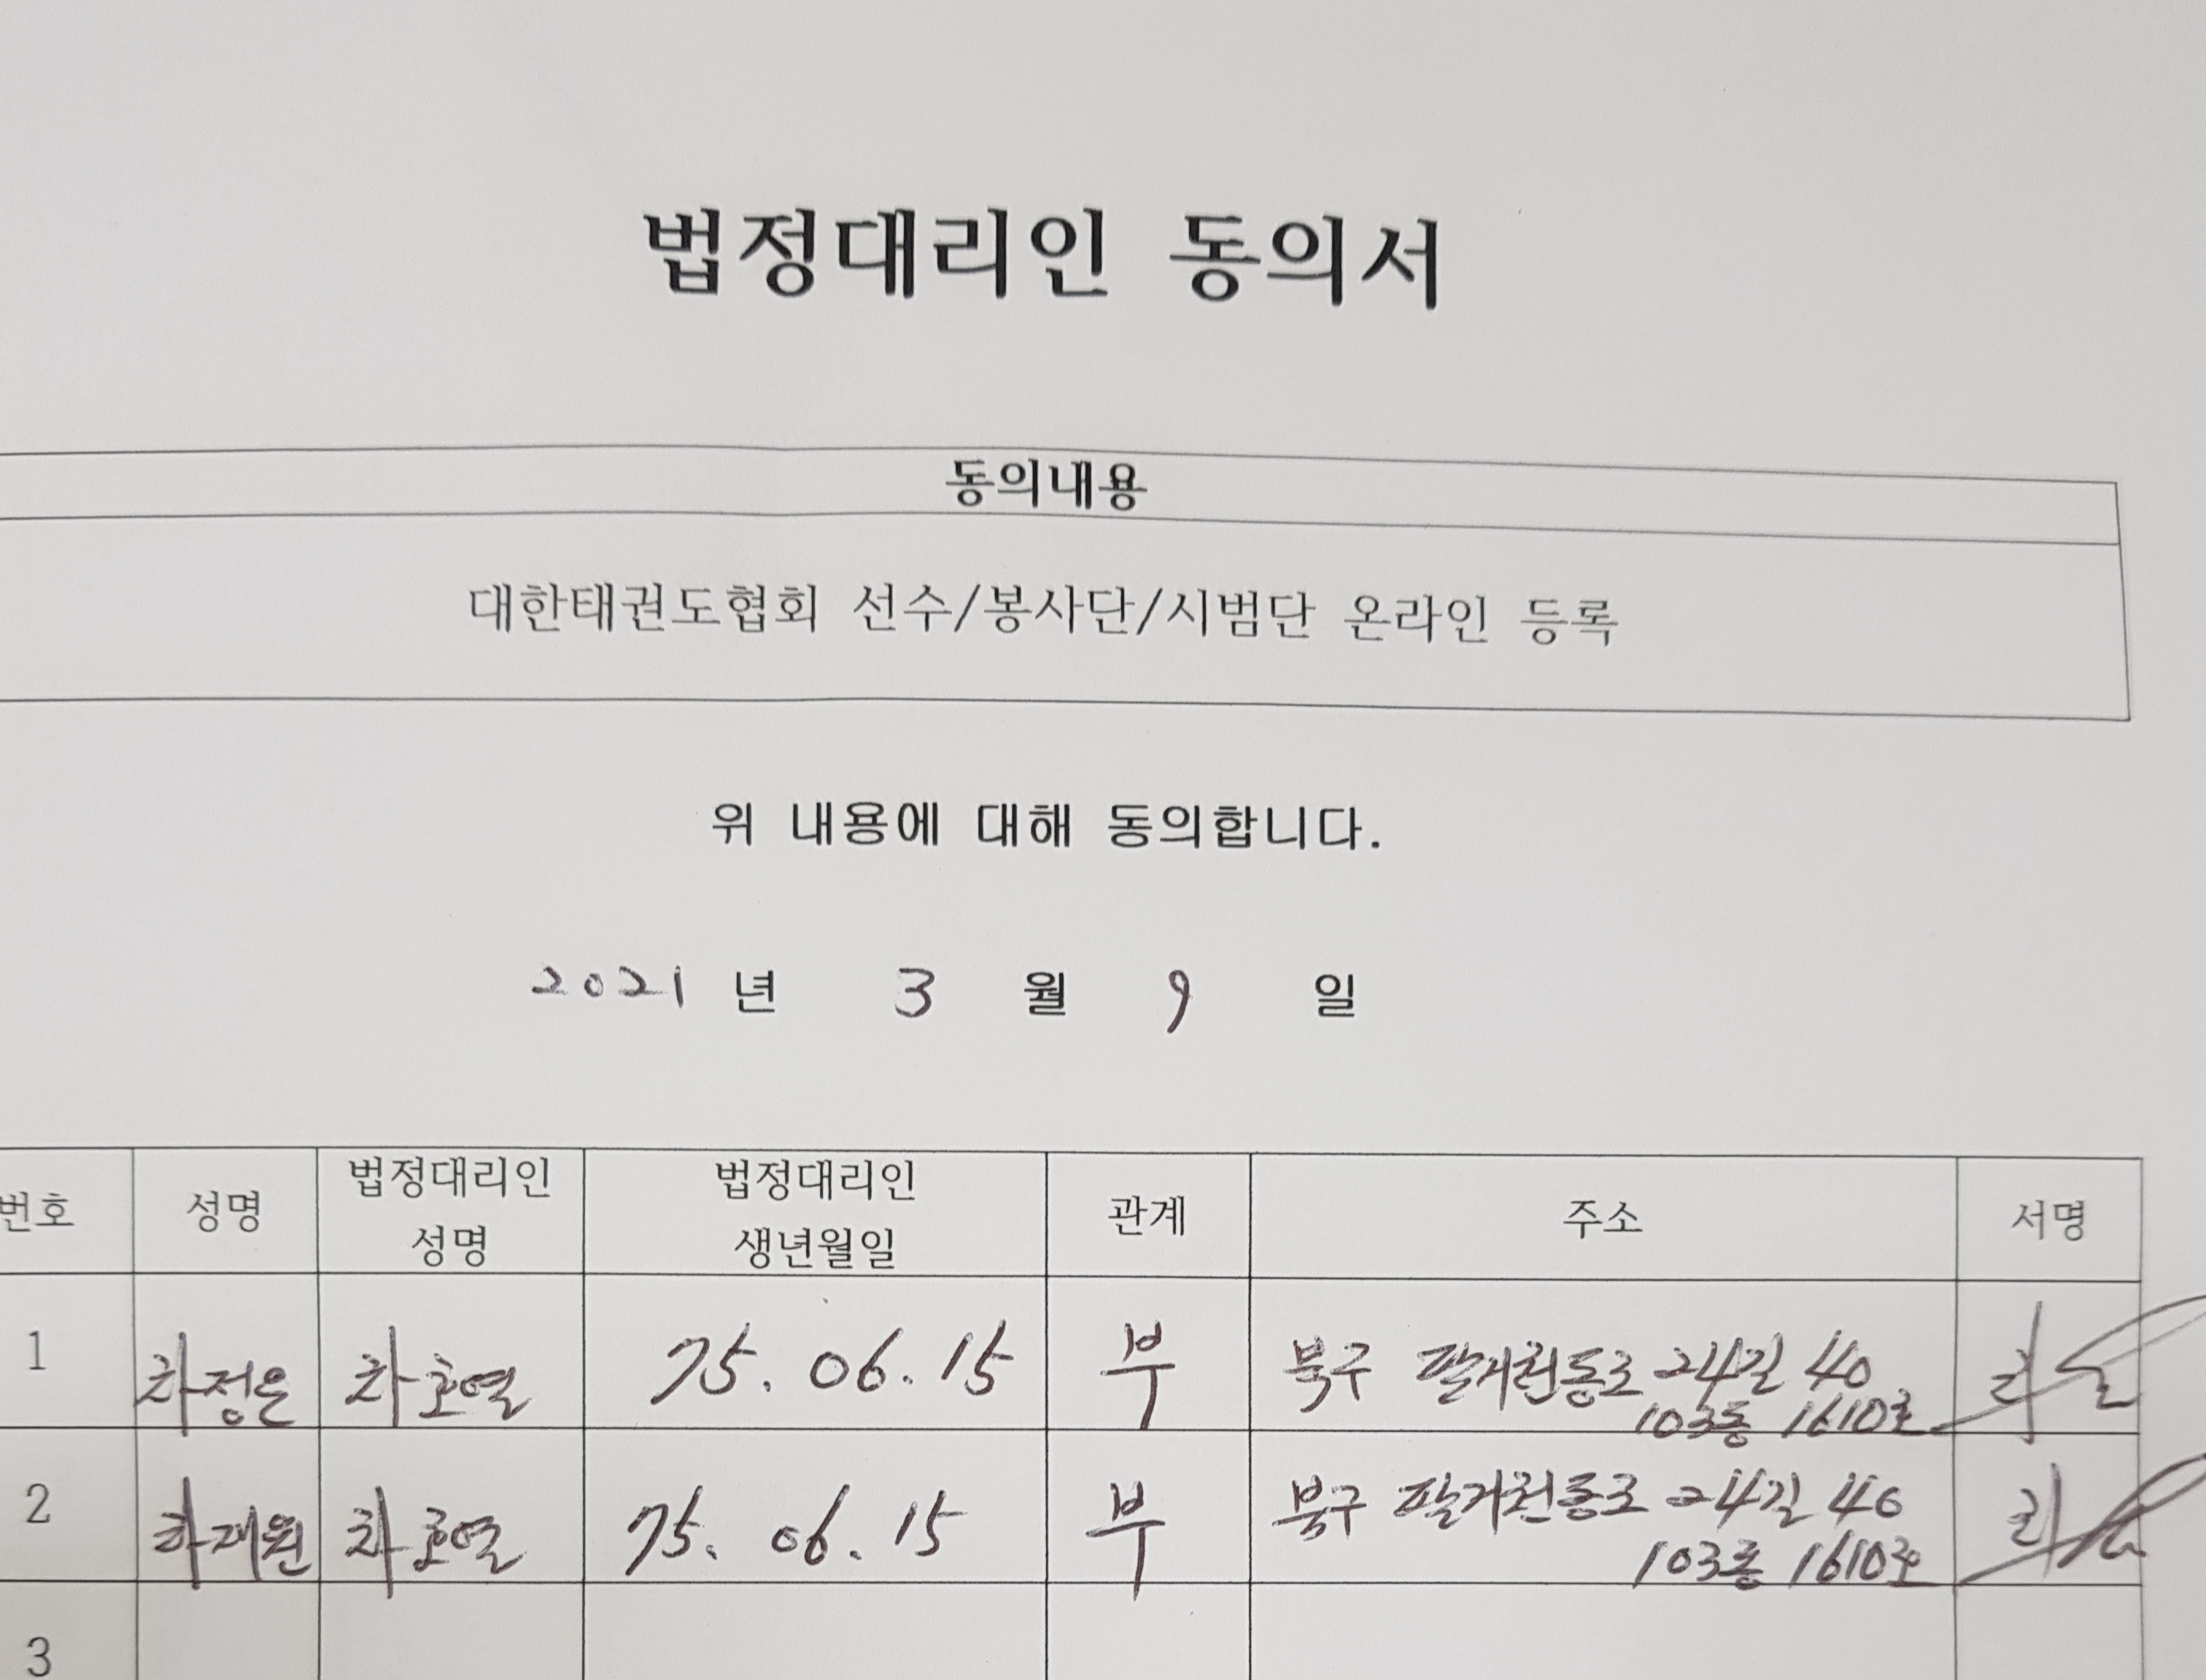 법정대리인 동의서
동의내용
대한태권도협회 선수/봉사단/시범단 온라인 등록
위 내용에 대해 동의합니다.
2021 년 3 월 9 일
번호 성명 법정대리인 성명 법정대리인 생년월일 관계 주소 서명
1 차정은 차호열 75. 06. 15 부 북구 팔거천동로 24길 40
103동 1610호
2 차재원 차호열 75. 06. 15 부 북구 팔거천동로 24길 40
103동 1610호
3